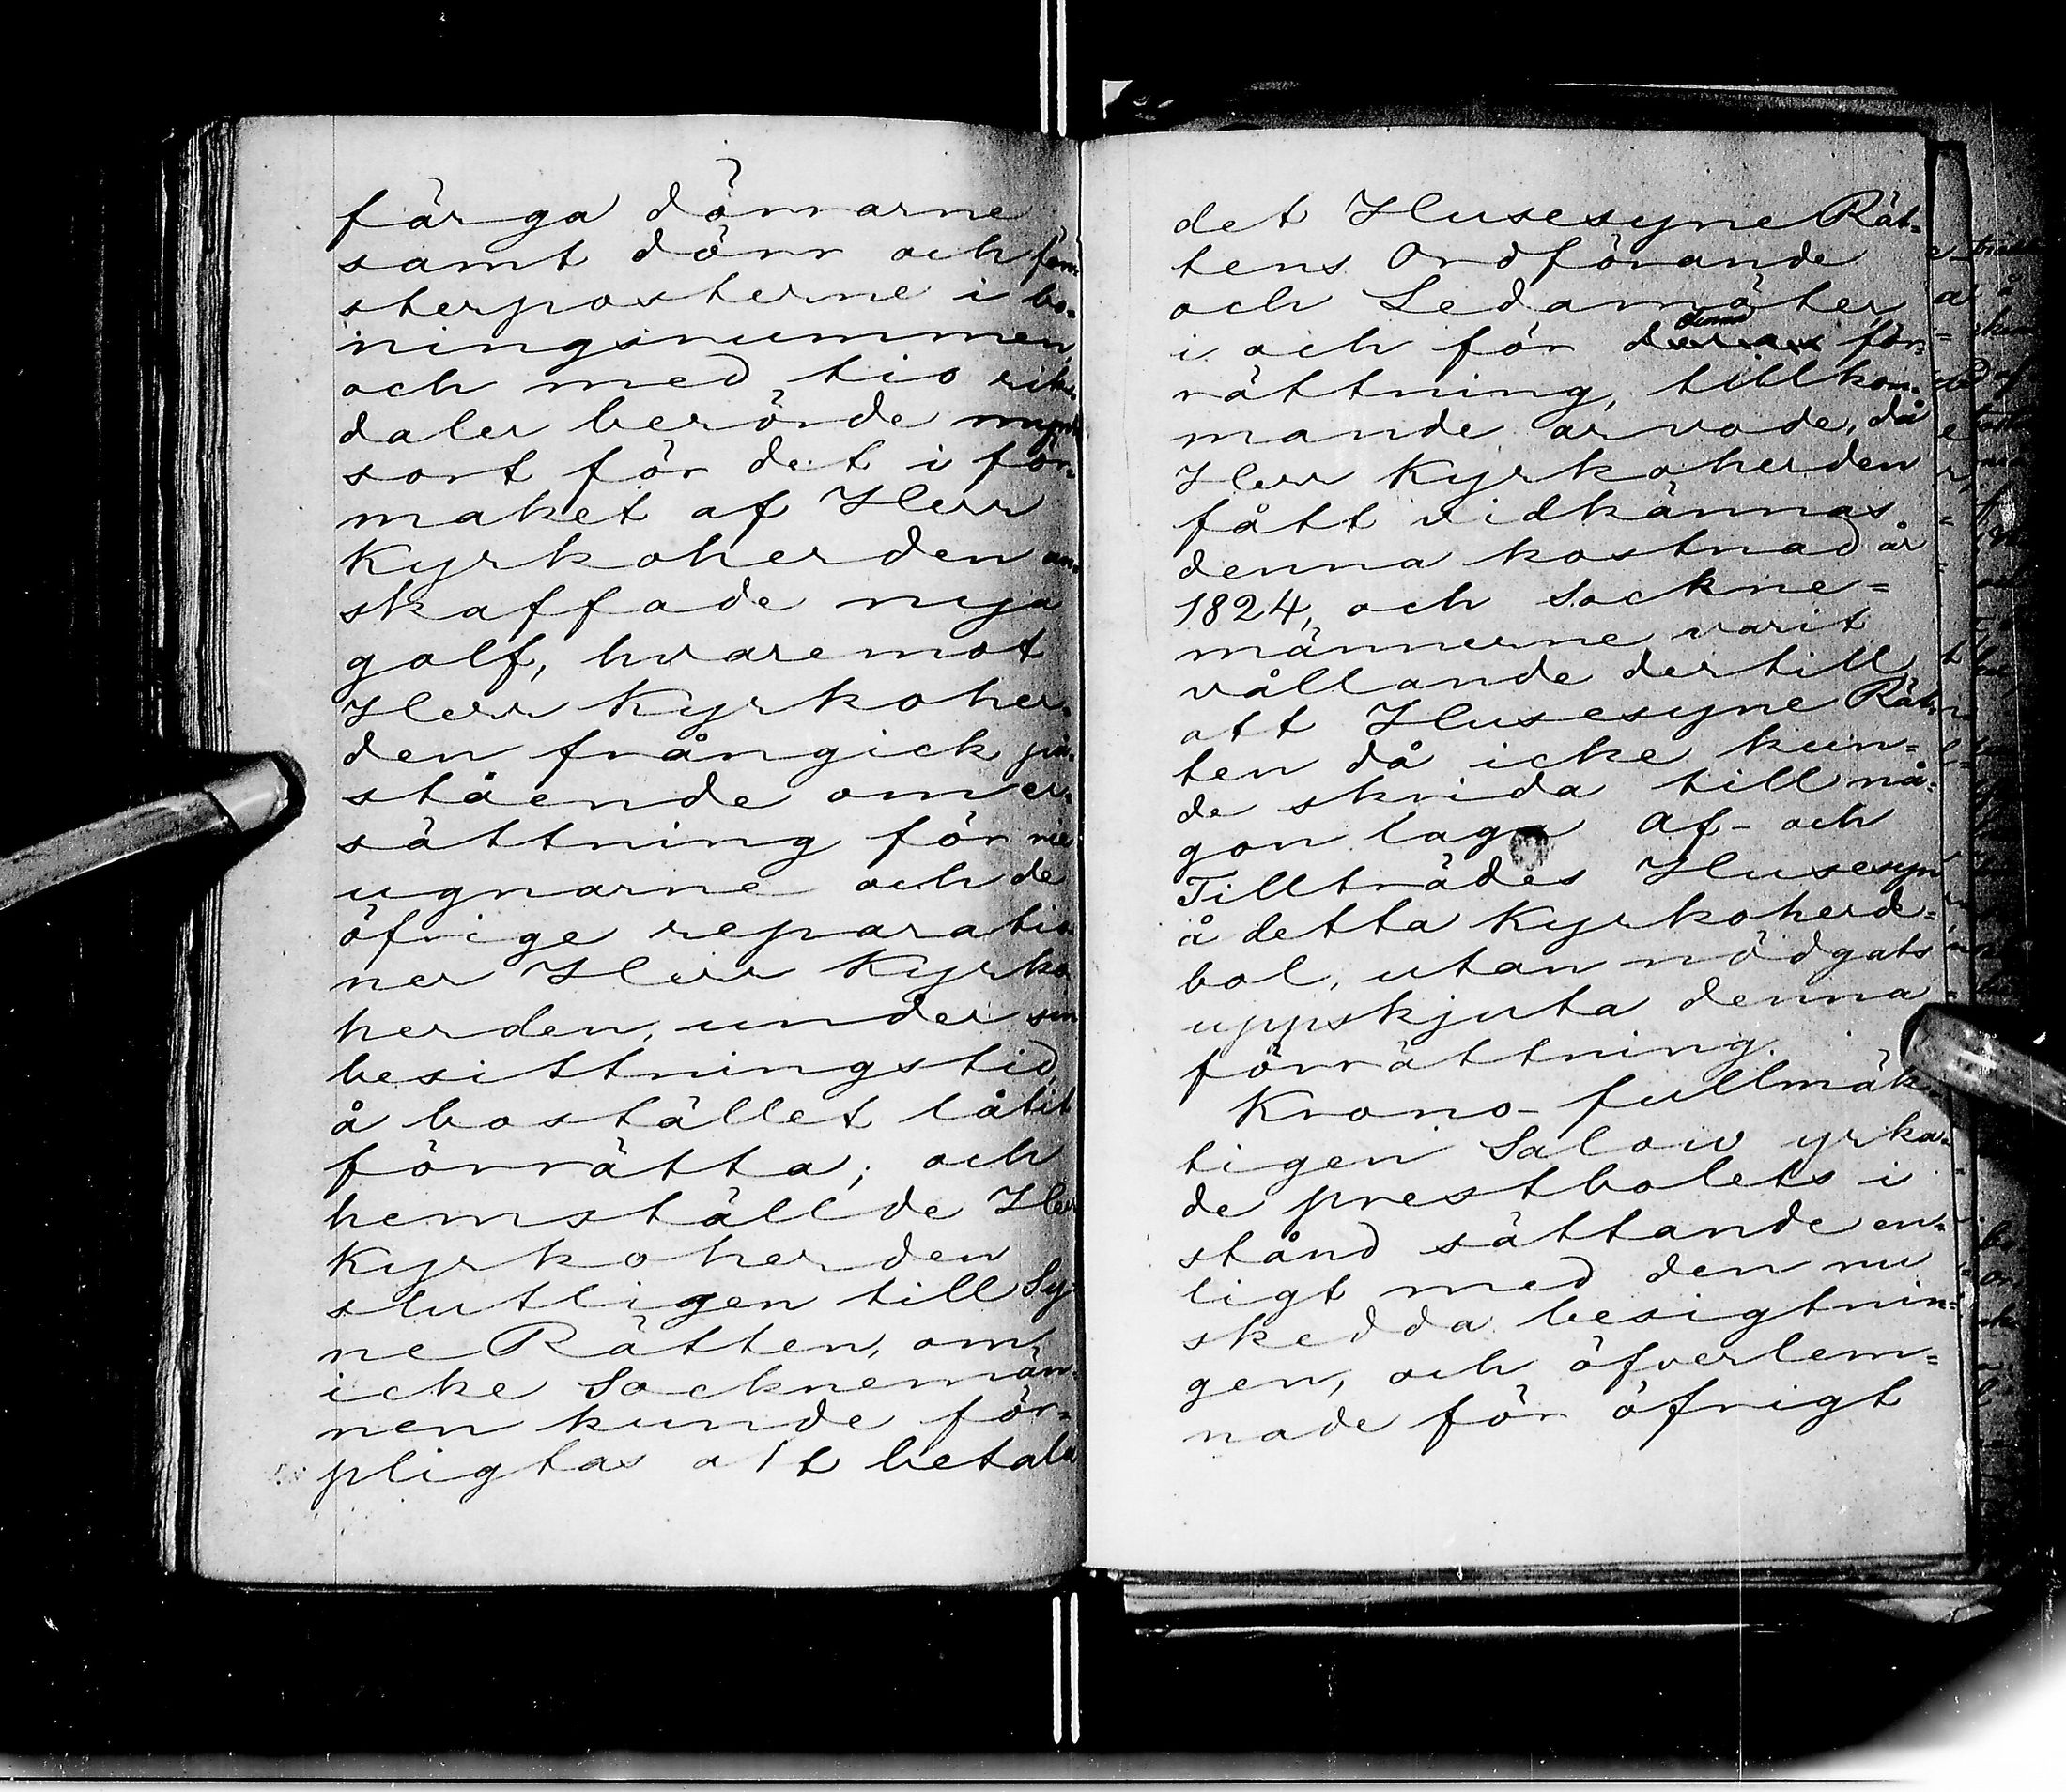 färga dörrarne
samt dörr och fön
sterposterne i bo-
ningsrummen,
och med tio riks
daler berörde mynt
sort för det i för-
maket af Herr
Kyrkoherden an-
skaffade nya
golf, hvaremot
Herr Kyrkoher-
den frångick på-
stående om er-
sättning för
ugnarne och de
öfrige reparatio
ner Herr Kyrko
herden, under sin
besittningstid
å bostället låtit
förrätta; och
hemställde Herr
Kyrkoherden
slutligen till Sy
ne Rätten, om
icke Socknemän-
nen kunde för-
pligtas att betala
det Husesyne Rät-
tens Ordförande
och Ledamöter
i och för denna för-
rättning, tillkom-
mande arvode, då
Herr Kyrkoherden
fått vidkännas
denna kostnad år
1824, och Sockne-
männerne varit
vållande dertill
att Husesyne Rät-
ten då icke kun-
de skrida till nå-
gon laga Af- och
Tillträdes Husesyn
å detta Kyrkoherde-
bol, utan nödgats
uppskjuta denna
förrättning.
Krono-fullmäk
tigen Salow yrka-
de prestbolets i
stånd sättande en-
ligt med den nu
skedda besigtnin-
gen, och öfverlem-
nade för öfrigt